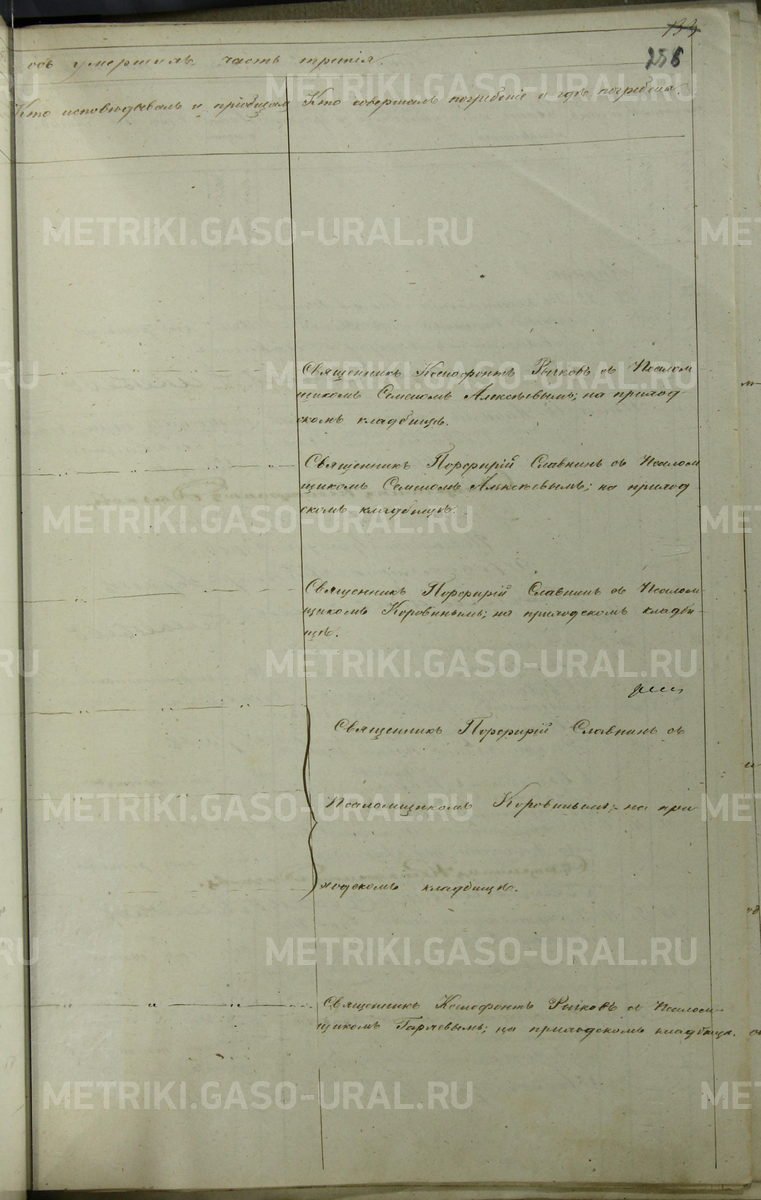 133
256
объ умершихъ часть третія.
Кто исповѣдывалъ и пріобщалъ
Кто совершалъ погребеніе и гдѣ погребены.
METRIKI.GASO-URAL.RU
Священникъ Ксенофонтъ Рыковъ съ Псалом
щикомъ Семеномъ Алексѣевымъ; на приход-
скомъ кладбищѣ.
Священникъ Порфирій Славнинъ съ Псалом
щикомъ Семеномъ Алексѣевымъ; на приход-
скомъ кладбищѣ.
Священникъ Порфирій Славнинъ съ Псалом
щикомъ Коровинымъ; на приходскомъ кладби-
щѣ.
Священникъ Порфирій Славнинъ съ
Псаломщикомъ Коровинымъ; на при-
ходскомъ кладбищѣ.
Священникъ Ксенофонтъ Рыковъ съ Псалом-
щикомъ Горчевымъ; на приходскомъ кладбищѣ.